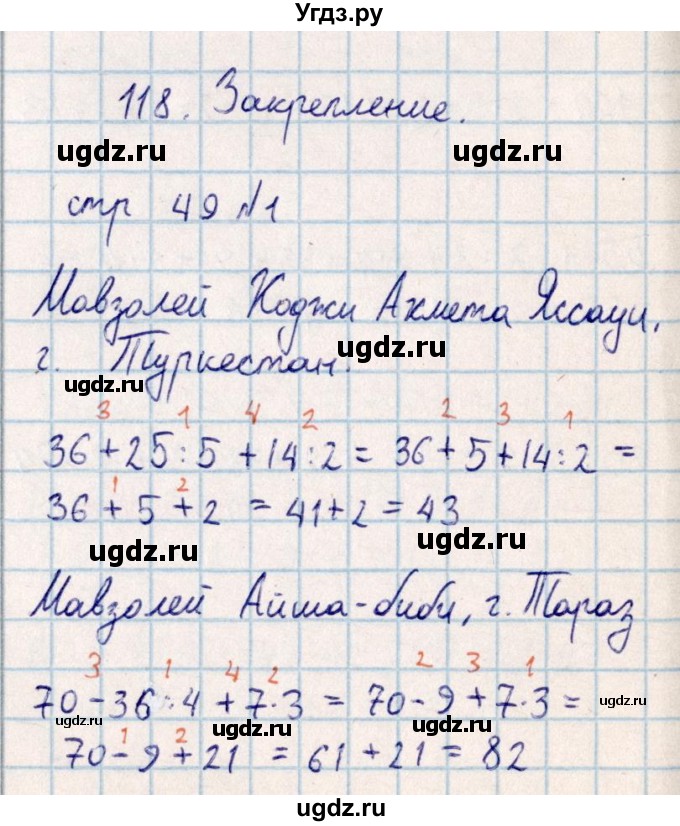 Угдз.ру
118. Закрепление.
ugdz.ru ugdz.ru
стр 49 №1
Мавзолей Ходжи Ахмета Яссауи,
ugdz.ru
г. Туркестан.
3 1 4 2 2 3 1
36+25:5+14:2= 36+5+14:2=
1 2
36+5+2 = 41+2=43
ugdz.ru ugdz.ru
Мавзолей Айша-биби, г. Тараз
3 1 4 2 2 3 1
70-36:4+7·3 = 70-9+7·3=
ugdz.ru ugdz.ru ugdz.ru
1 2
70-9+21 = 61+21=82
ugdz.ru
ugdz.ru